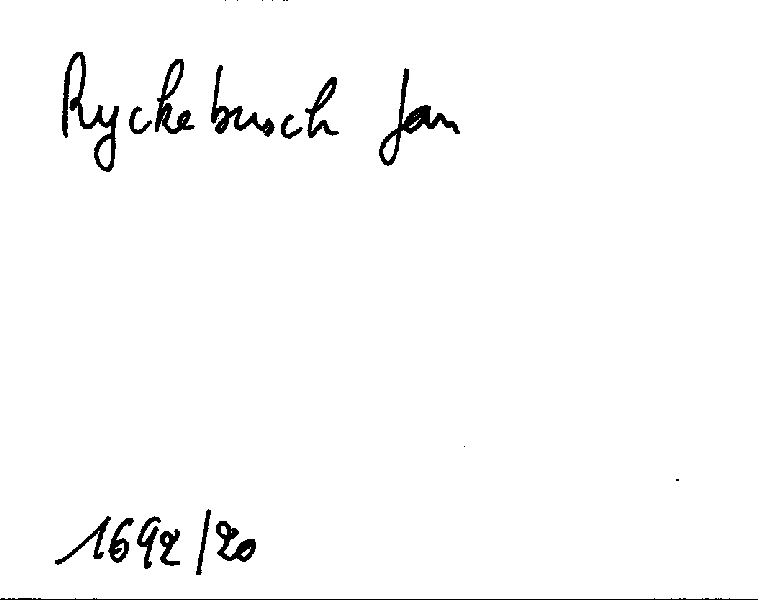 Ryckebusch Jan
1692/20